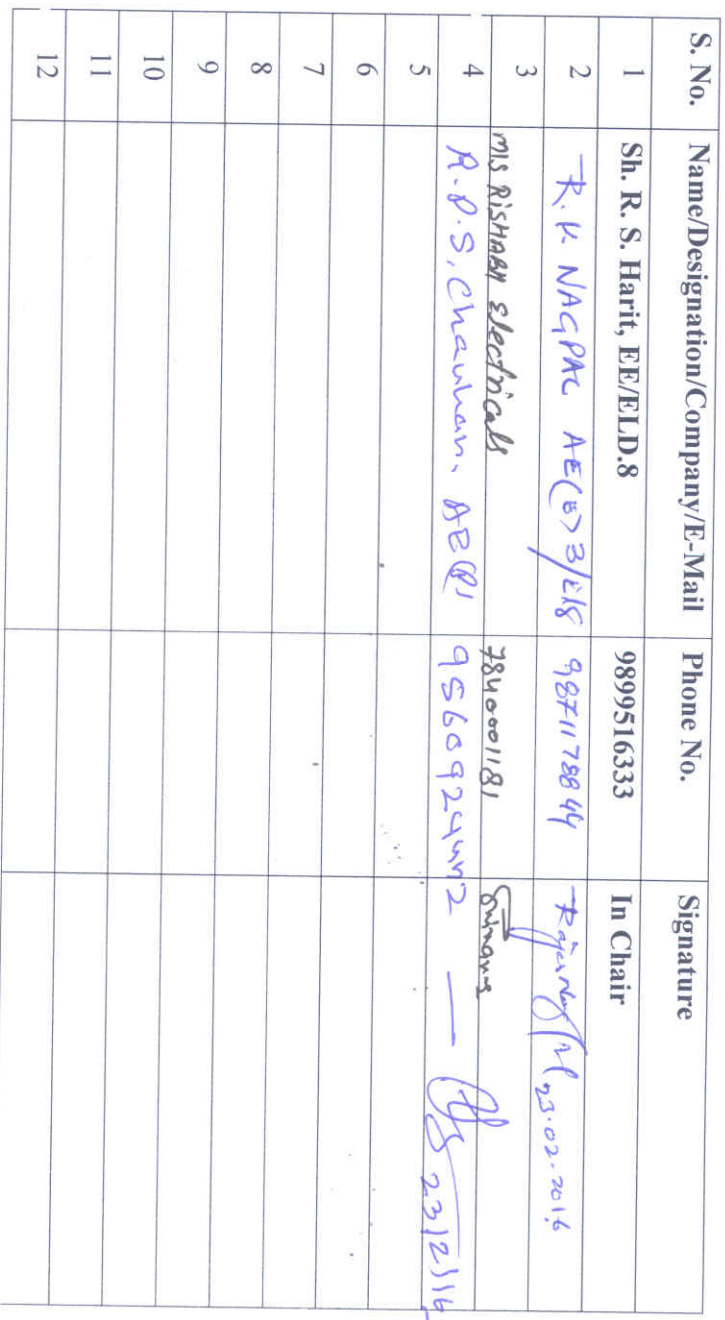 S. No. Name/Designation/Company/E-Mail Phone No. Signature
1 Sh. R. S. Harit, EE/ELD.8 9899516333 In Chair
2 R. K NAGPAL AE(E) 3/E/8 9871178844 23.02.2016
3 M/S RISHABH Electricals 7840001181
4 R.P.S. Chauhan. 23/2/16
5
6
7
8
9
10
11
12